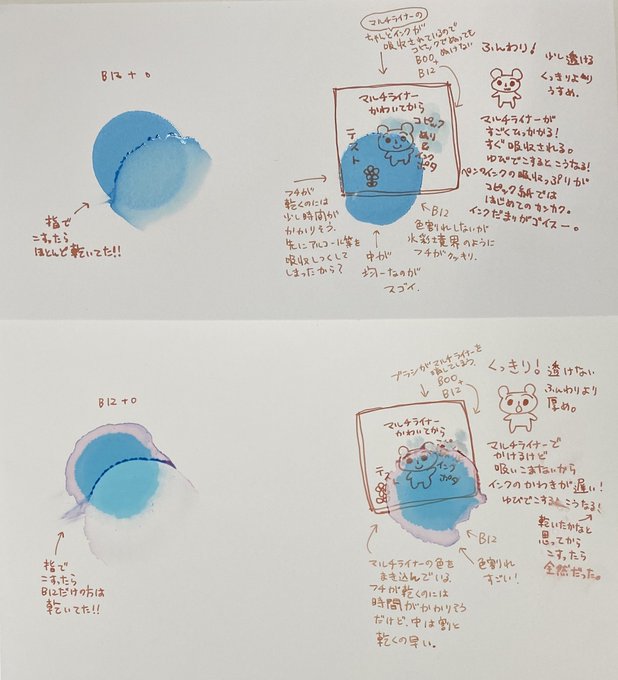 B12 + 0
指で
こすったら
ほとんど乾いてた!!
マルチライナーの
ちゃんとインクが
吸収されているので
コピックでぬっても
ぬけない
B00
+
B12
マルチライナー
かわいてから
コピック
ぬり&
インク
ポタ
テスト
フチが
乾くのには
少し時間が
かかりそう。
先にアルコール等を
吸収しつくして
しまったから?
中が
均一なのが
スゴイ。
B12
色割れしないが
水彩境界のように
フチがクッキリ。
ふんわり!
少し透ける
くっきりより
うすめ。
マルチライナーが
すごくひっかかる!
すぐ吸収される。
ゆびでこするとこうなる!
ペンやインクの吸収っぷりが
コピック紙では
はじめてのカンカク。
インクだまりがゴイスー。
B12 + 0
指で
こすったら
B12だけの方は
乾いてた!!
ブラシがマルチライナーを
壊してしまう。
B00
+
B12
マルチライナー
かわいてから
インク
ポタ
テスト
マルチライナーの色を
まき込んでいる。
フチが乾くのには
時間がかかりそう
だけど、中は割と
乾くの早い。
B12
色割れ
すごい!
くっきり!
透けない
ふんわりより
厚め。
マルチライナーで
かけるけど
吸いこまないから
インクのかわきが遅い!
ゆびでこするとこうなる!
乾いたかなと
思ってから
こすったら
全然だった。